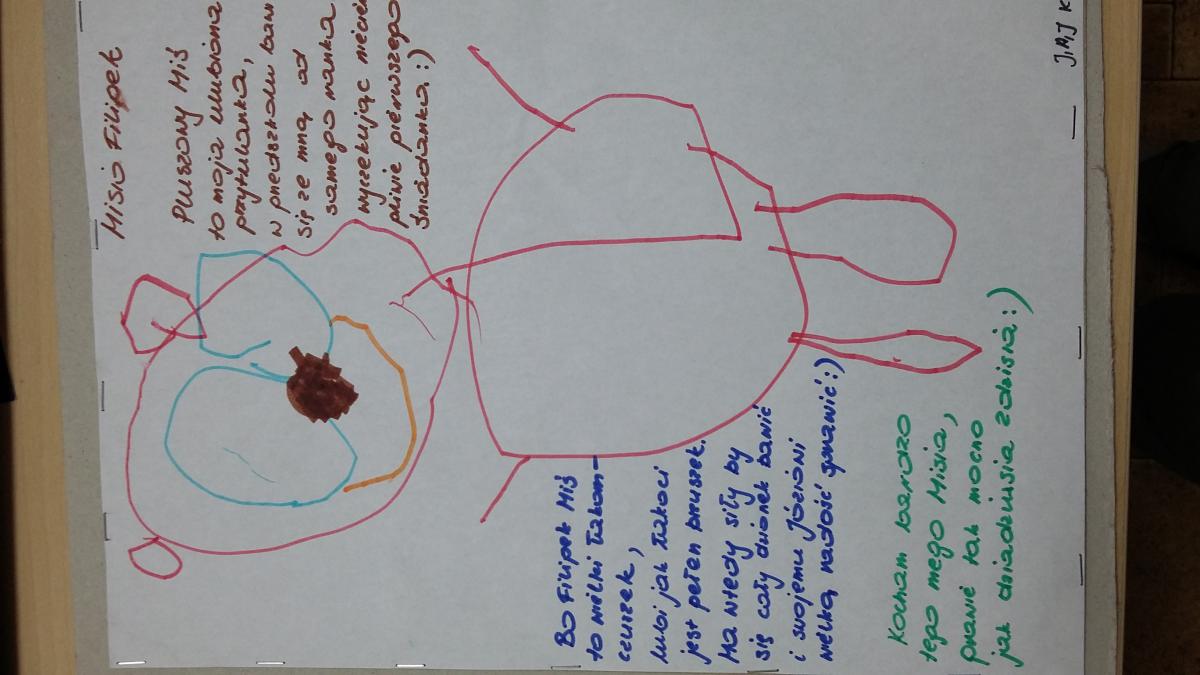 Misio Filipek
Pluszowy Miś
to moja ulubiona
przytulanka,
w przedszkolu bawi
się ze mną od
samego ranka
wyczekując niecier
pliwie pierwszego
śniadanka :)
Bo Filipek Miś
to wielki Łakom-
czuszek,
lubi jak łakoci
jest pełen brzuszek.
Ma wtedy siły by
się cały dzionek bawić
i swojemu Józiowi
wielką radość sprawić :)
Kocham bardzo
tego mego Misia,
prawie tak mocno
jak dziadziusia Zdzisia :)